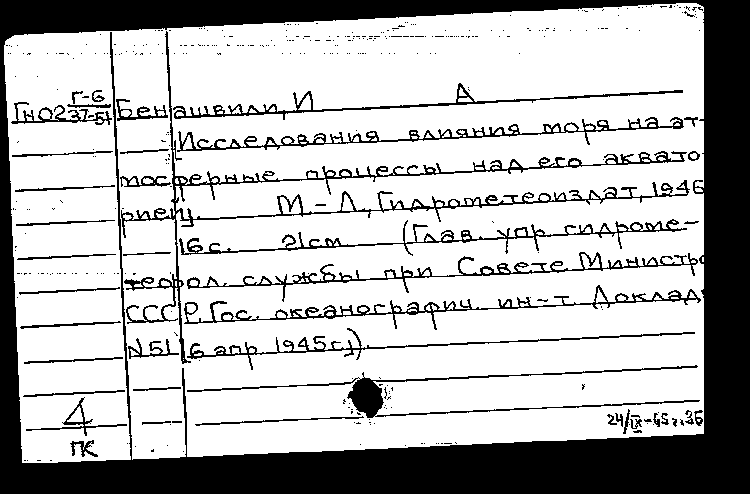 Г-6
ГнО2 37-51 Бенашвили, И А
Исследования влияния моря на ат-
мосферные процессы над его аквато-
рией. М-Л, Гидрометеоиздат, 1946
16с. 21см (Глав. упр гидроме-
теорол. службы при Совете Министро
СССР. Гос. океанографич. ин-т. Доклад
N51 [6 апр. 1945г.]).
4
ПК
24/IX-65г.